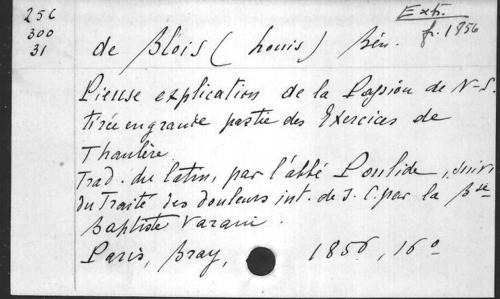 256
300
31
Extr.
fr. 1856
de Blois (Louis) Bén.
Pieuse explication de la Passion de N-S.
tirée en grande partie des Exercices de
Thaulère
Trad. du latin, par l'abbé Poulide, suivi
du Traité des douleurs int. de J. C. par la Bse
Baptiste Varani.
Paris, Bray, 1856, 16°